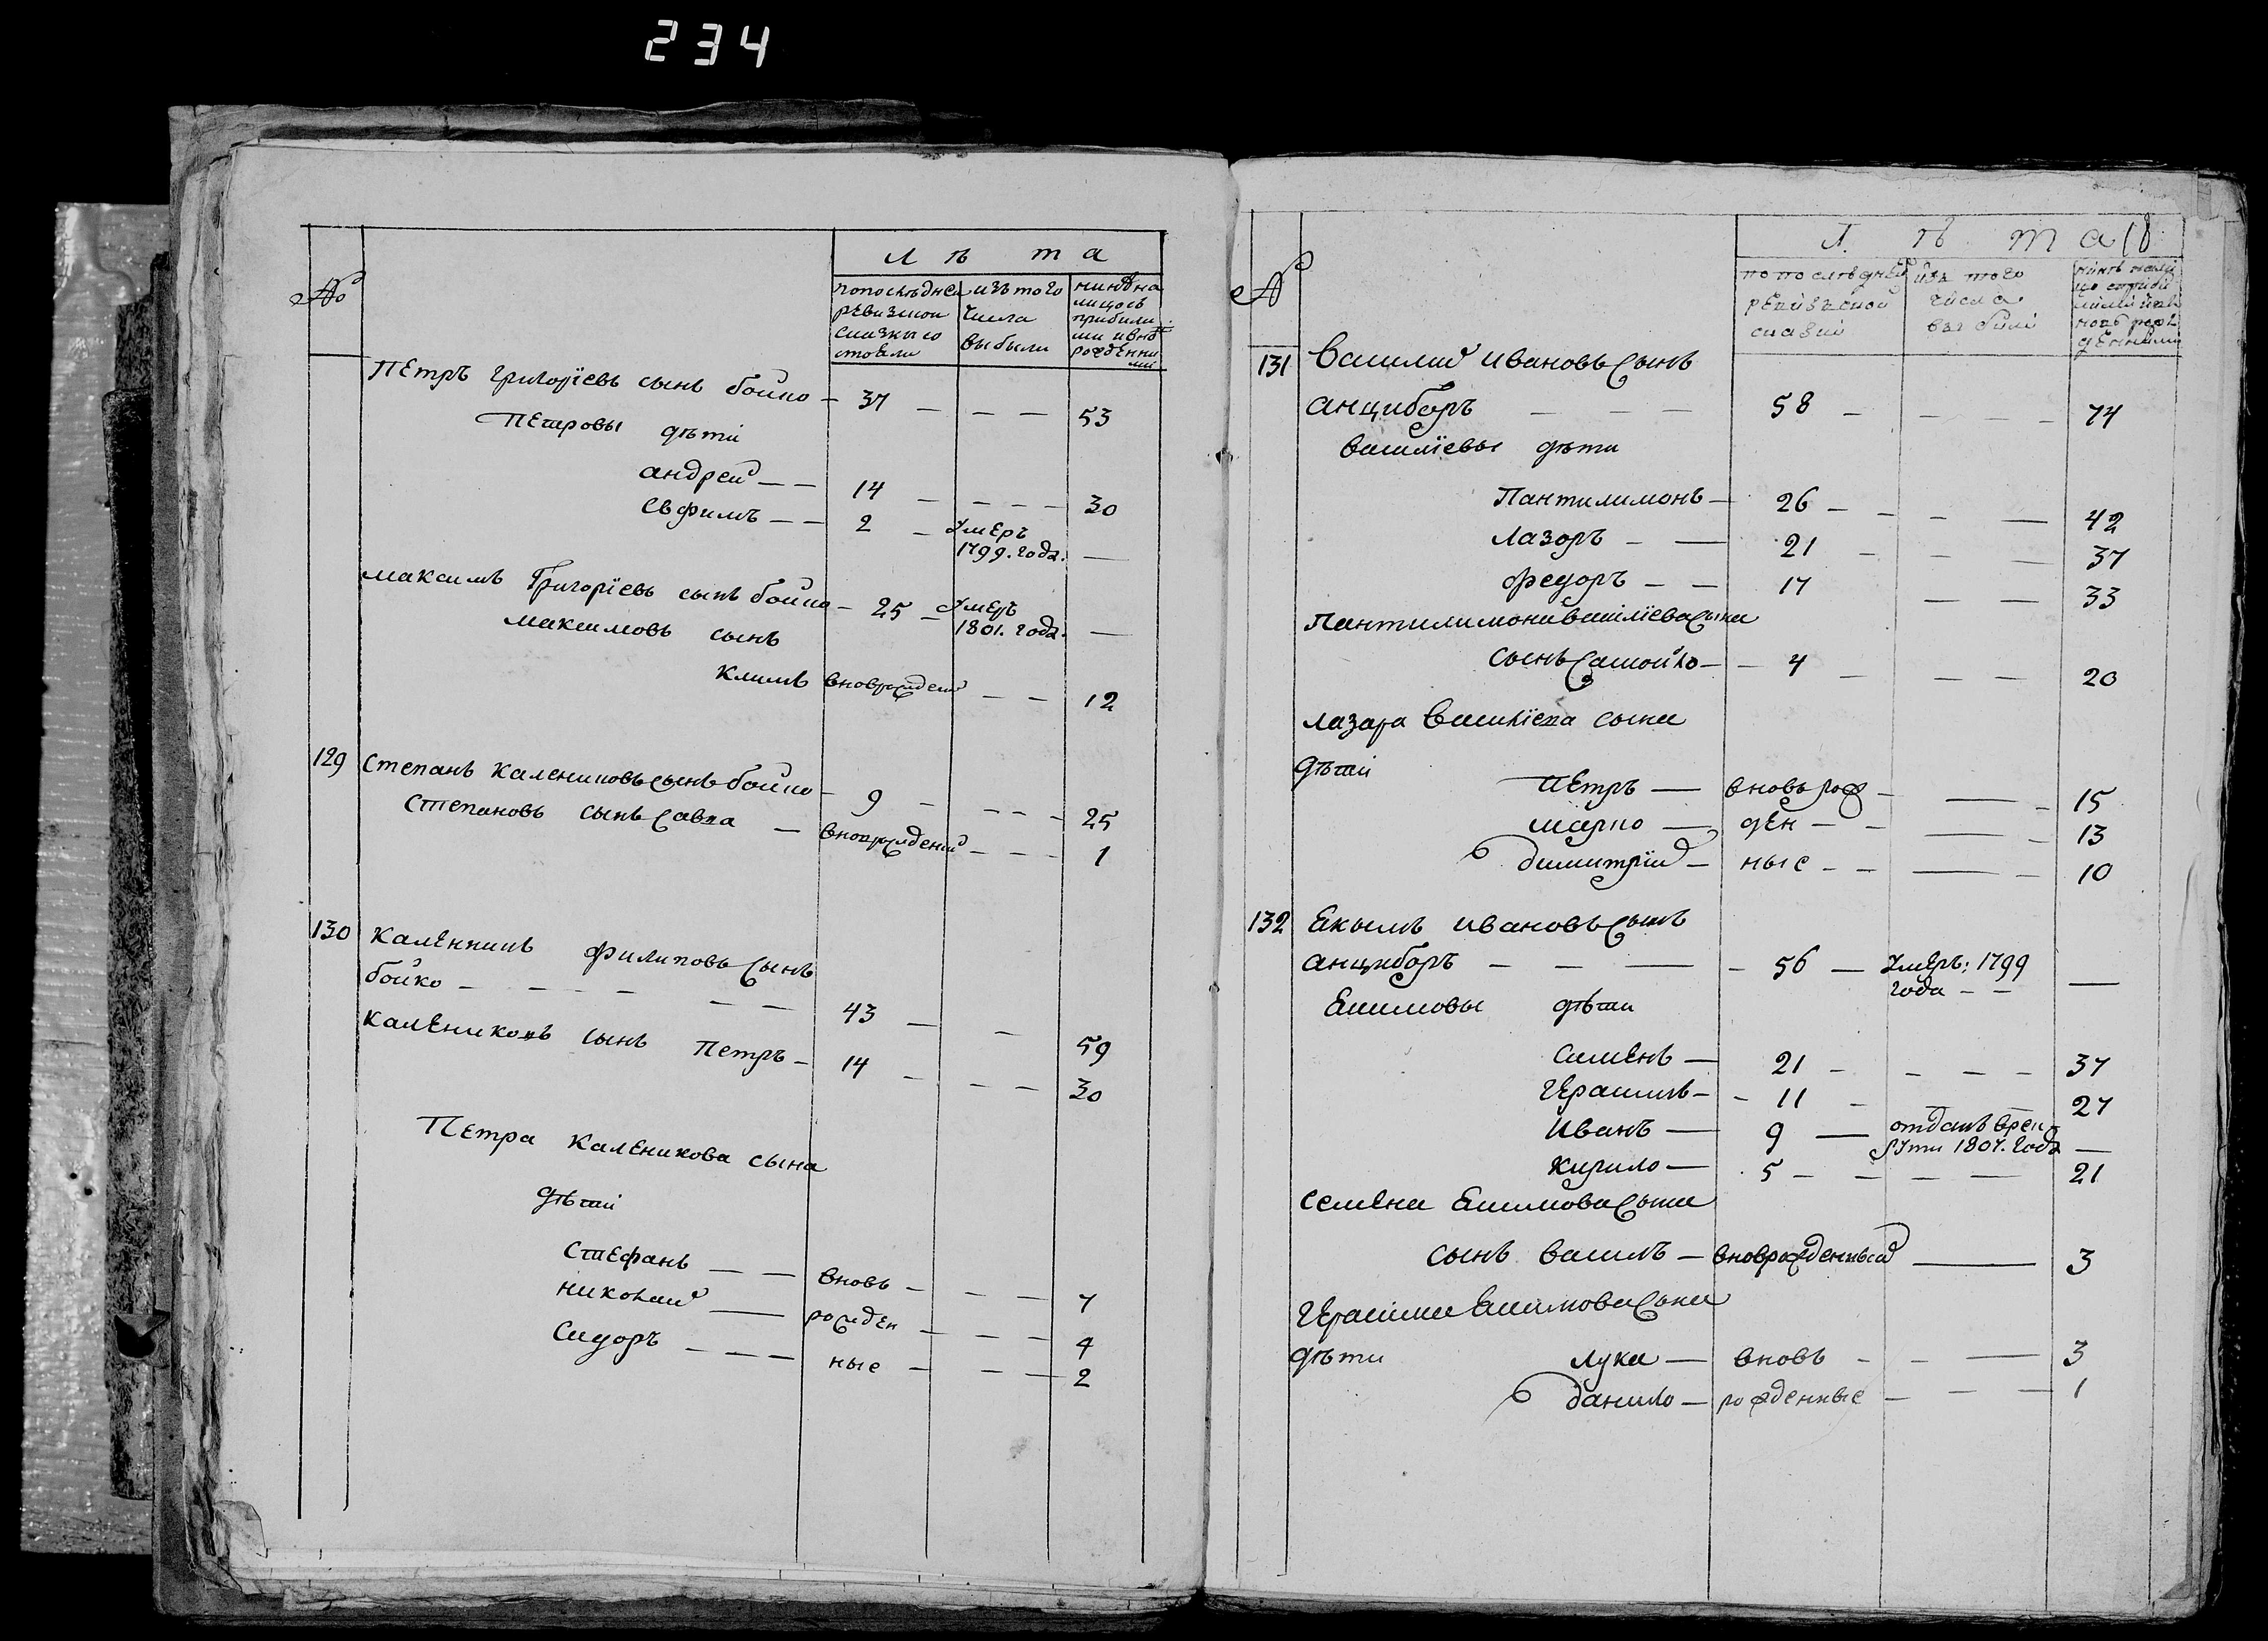 234
№
Лѣта
попослѣдней ревизской сказки состояли
изъ того числа выбыли
нинѣ на лицо съ прибили ми ивно рожденни ми
Петръ григорїевъ сынъ бойко — 37 — — — — 53
Петровы дѣти
андрей — — 14 — — — — 30
Евфимъ — — 2 — Умеръ
1799. года. —
максимъ Григорїевъ сынъ бойко — 25 — Умеръ
1801. года. —
максимовъ сынъ
климъ вноврожден — — 12
129 Степанъ калениковъ сынъ бойко — 9 — — — — 25
Степановъ сынъ Савка — вноврожденій — — — 1
130 каленникъ филиповъ сынъ
бойко — — — — — — 43 — — 59
калениковъ сынъ Петръ — 14 — — — 30
Петра каленикова сына
дѣти
Стефанъ — — вновь — — — 7
николай — рожден — — — 4
Сидоръ — — — ные — — — 2
№
Лѣта 18
по послѣдней ревизъской сказки
изъ того числа вы были
131 Василий ивановъ сынъ
анциборъ — — — 58 — — — — 74
василїевы дѣти
Пантилимонъ — 26 — — — — 42
Лазоръ — — 21 — — — 37
федоръ — — 17 — — 33
Пантилимона василїева сына
сынъ Самойло — — 4 — — — 20
лазара василїева сына
дѣти
Петръ — вновь рож — — — 15
марко — ден — — — — 13
димитрїй — ные — — — — 10
132 Екимъ ивановъ сынъ
анциборъ — — — — 56 — Умеръ: 1799
года — — —
Екимовы дѣти
Сименъ — 21 — — — — 37
герасимъ — — 11 — — — 27
Иванъ — 9 — отданъ врек
рути 1807. года —
кирило — 5 — — — — 21
семена Екимова сына
сынъ василъ — вноврожденный — 3
герасима Екимова сына
дѣти лука — вновь — — — 3
данило — рожденные — — — 1